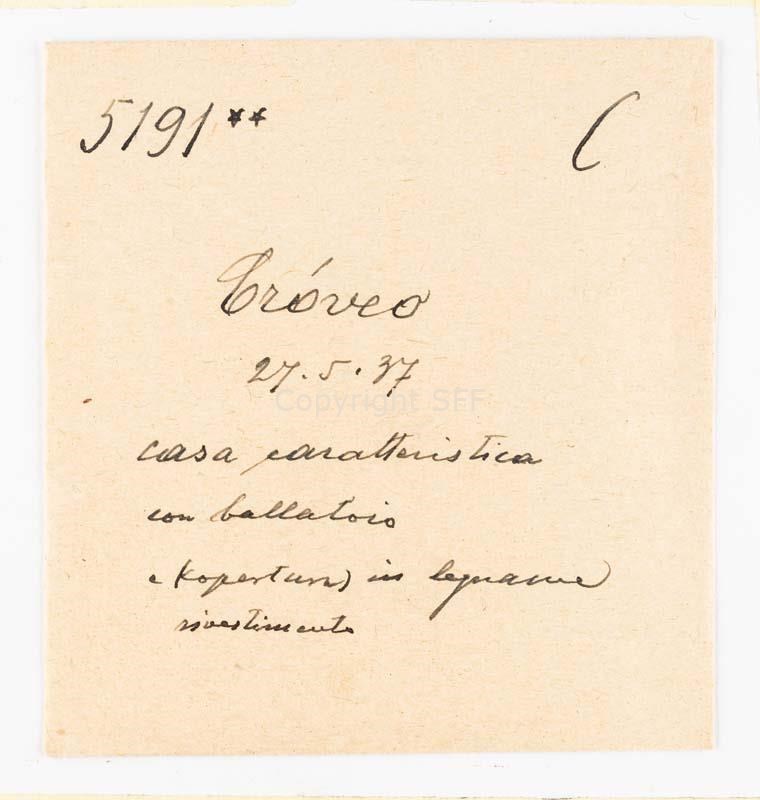 5191** C
Cróveo
27.5.37
Copyright SEF
casa caratteristica
con ballatoio
e (copertura) in legname
rivestimento